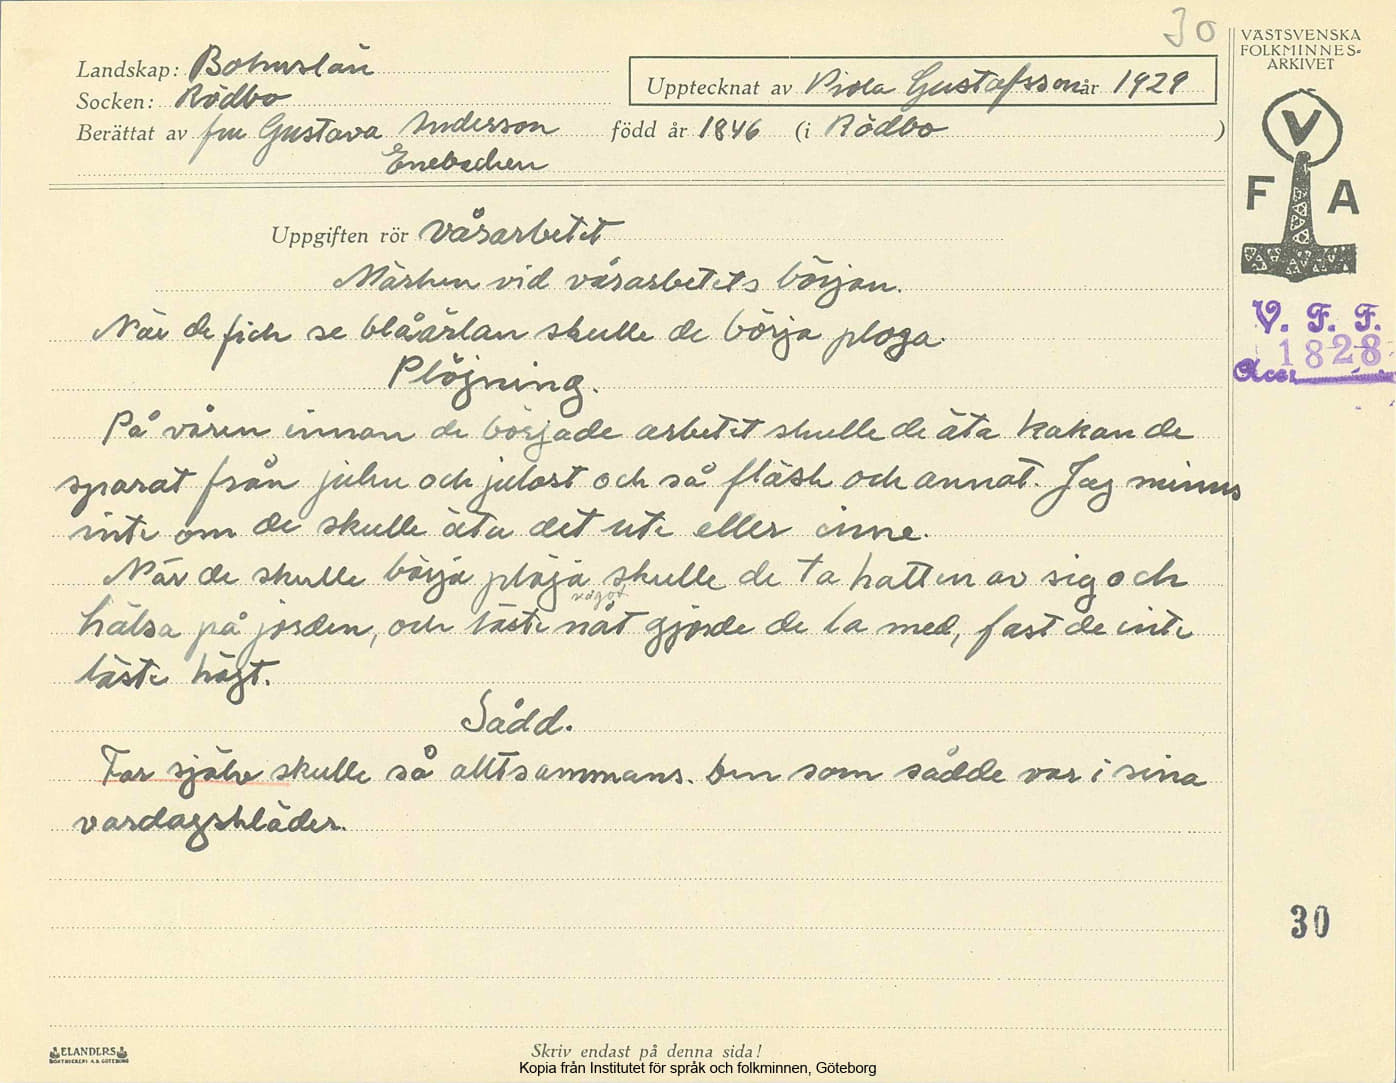 30
VÄSTSVENSKA
FOLKMINNES-
ARKIVET
Landskap: Bohuslän
Socken: Rödbo
Upptecknat av Viola Gustafsson år 1929
Berättat av fru Gustava Andersson född år 1846 (i Rödbo )
Enebacken
V
F A
Uppgiften rör vårarbetet
Märken vid vårarbetets början.
När de fick se blåärlan skulle de börja ploga.
V. F. F.
1828
Acc.
Plöjning.
På våren innan de började arbetet skulle de äta kakan de
sparat från julen och julost och så fläsk och annat. Jag minns
inte om de skulle äta det ute eller inne.
När de skulle börja plöja skulle de ta hatten av sig och
något
hälsa på jorden, och läste nåt gjorde de la med, fast de inte
läste högt.
Sådd.
Far själv skulle så alltsammans. Den som sådde var i sina
vardagskläder.
30
ELANDERS
BOKTRYCKERI A.B. GÖTEBORG
Skriv endast på denna sida!
Kopia från Institutet för språk och folkminnen, Göteborg